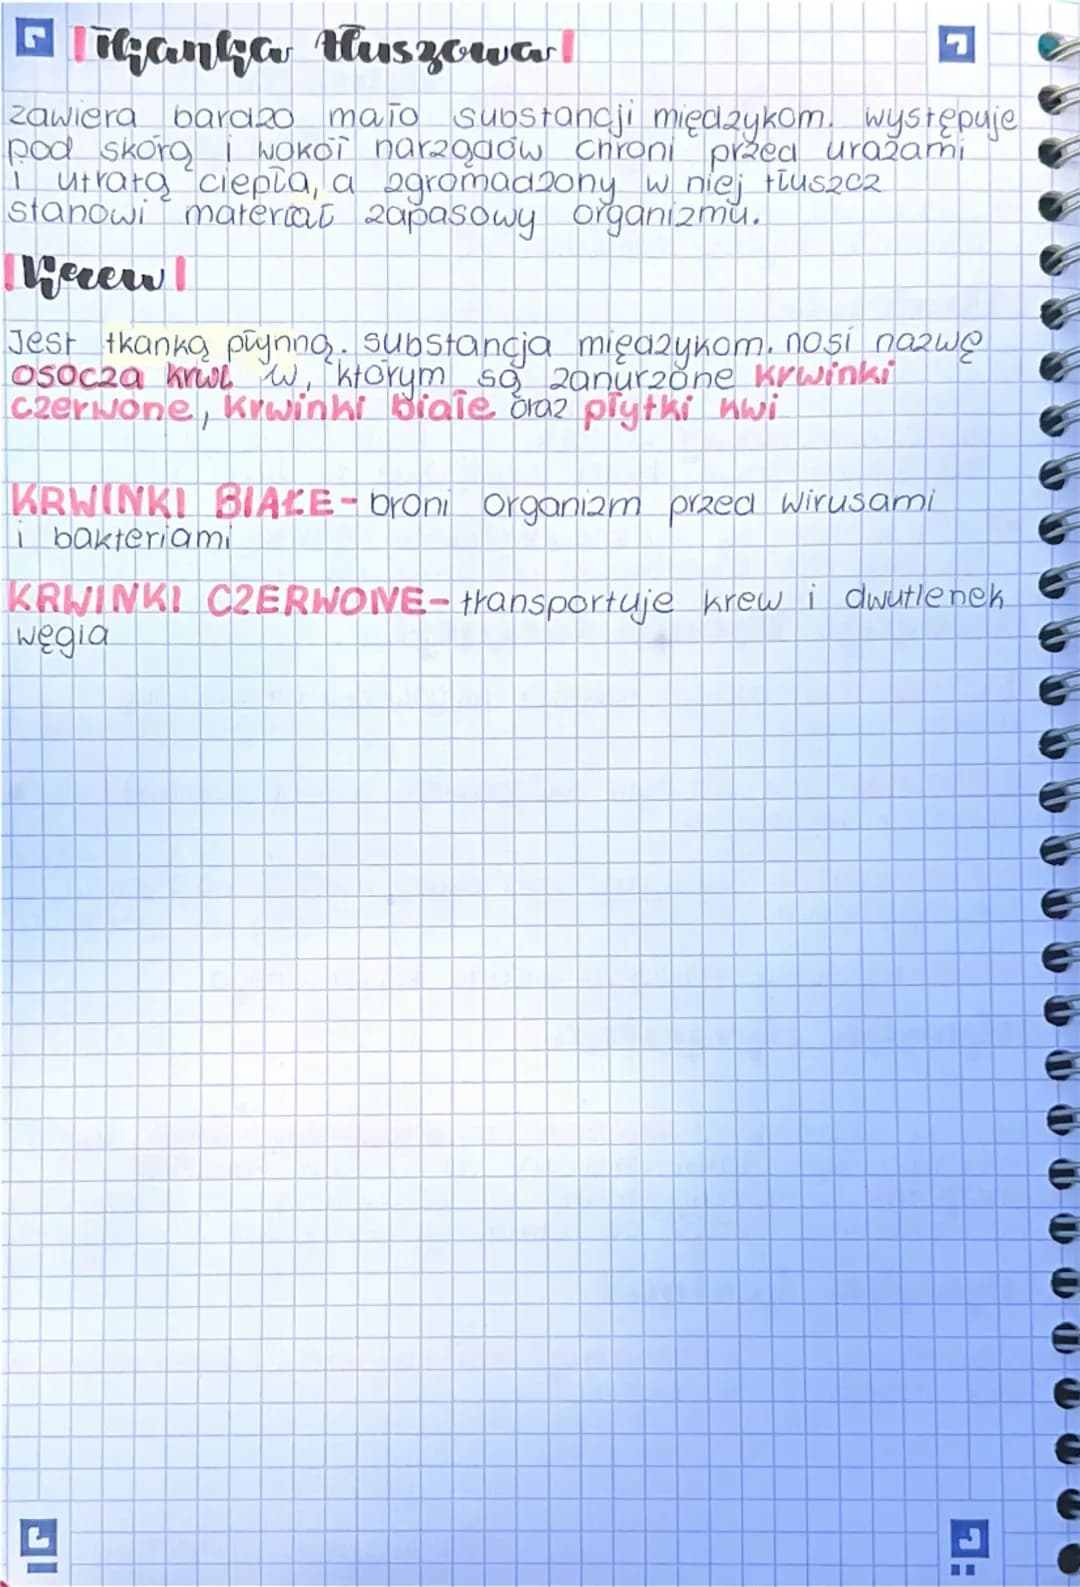 Tkanka tłuszowa
zawiera bardzo mało substancji międzykom. występuje
pod skórą i wokół narządów chroni przed urazami
i utratą ciepła, a zgromadzony w niej tłuszcz
stanowi materiał zapasowy organizmu.
Krew
Jest tkanką płynną. substancja międzykom. nosi nazwę
osocza krwi w, którym są zanurzone krwinki
czerwone, krwinki białe oraz płytki kwi
KRWINKI BIAŁE - broni organizm przed wirusami
i bakteriami
KRWINKI CZERWONE - transportuje krew i dwutlenek
węgla